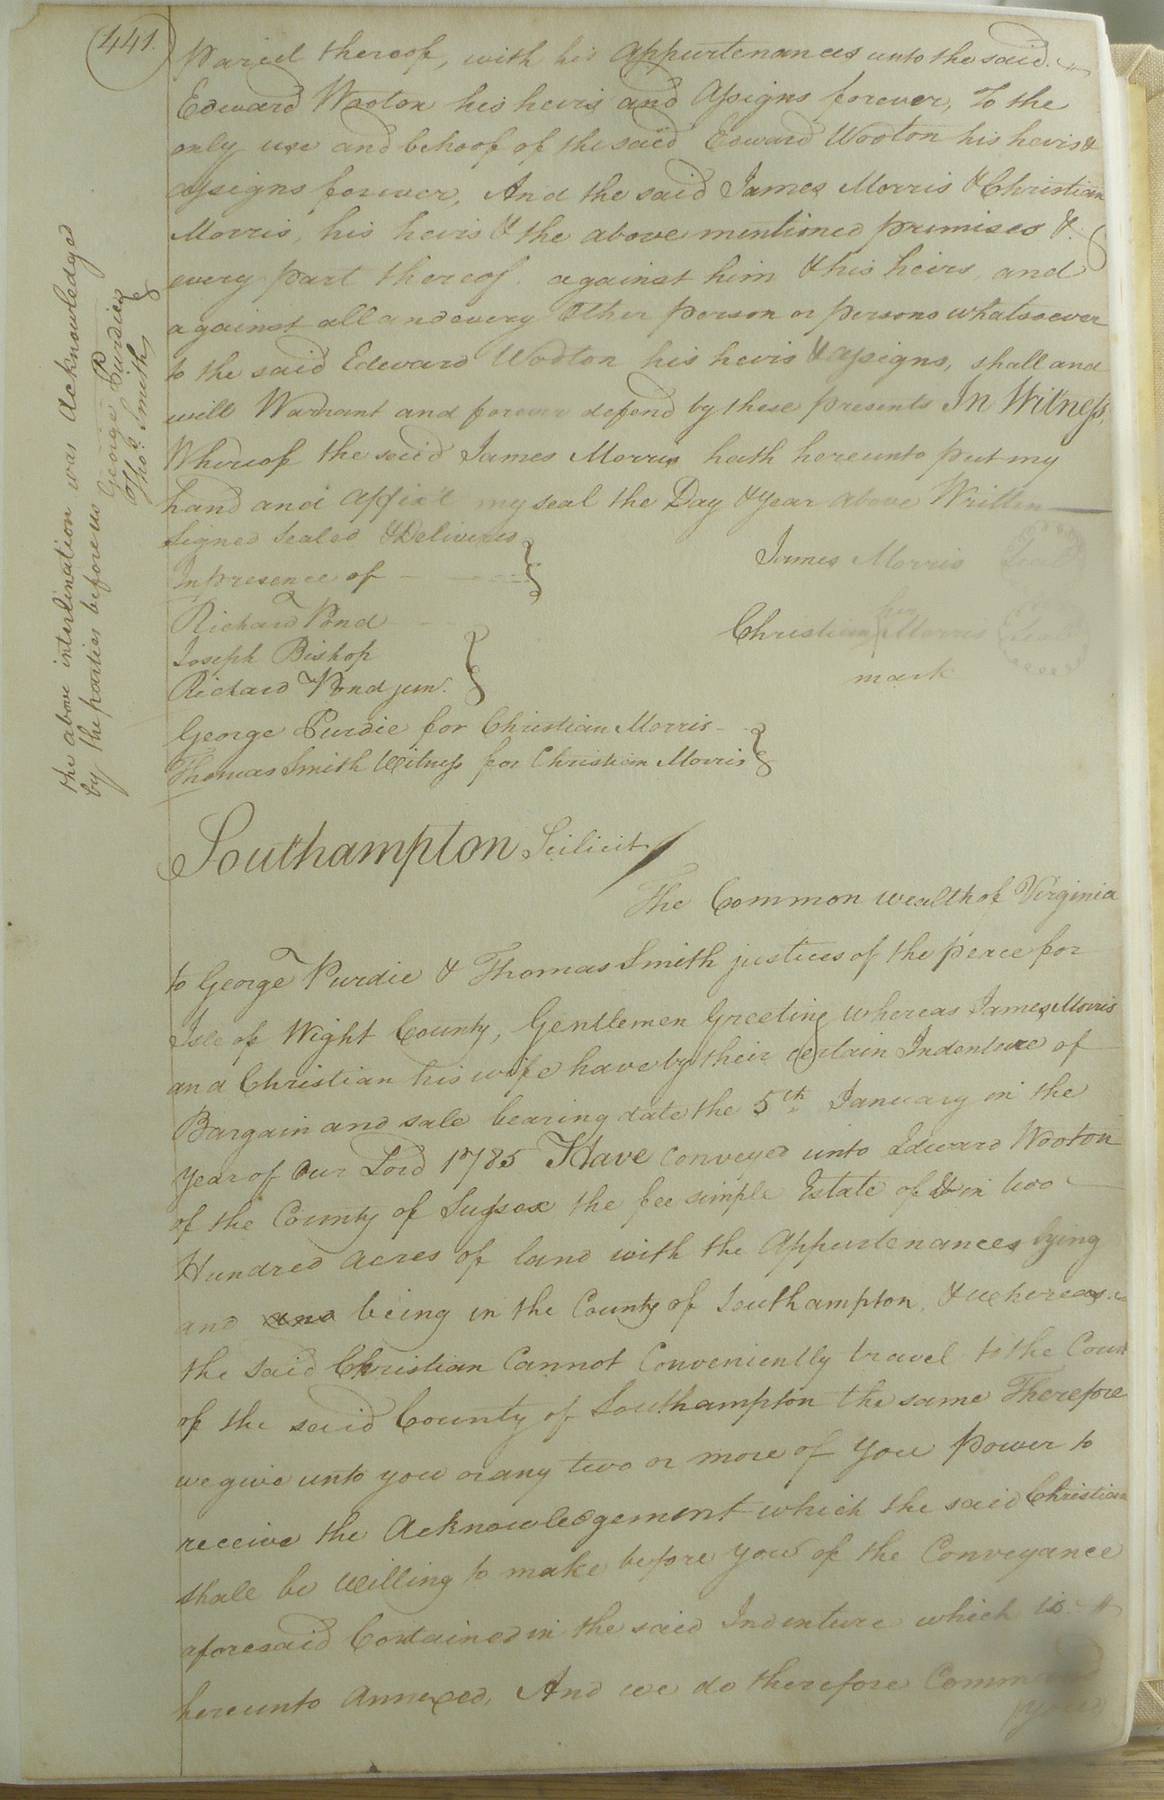 441.
Parcel thereof, with his Appurtenances unto the said
Edward Wooton his heirs and Assigns forever, To the
only use and behoof of the said Edward Wooton his heirs &
assigns forever, And the said James Morris & Christian
Morris, his heirs & the above mentioned premises &
every part thereof against him & his heirs, and
against all and every Other person or persons whatsoever
to the said Edward Wooton his heirs & assigns, shall and
will Warrant and forever defend by these presents In Witness
Whereof the said James Morris hath hereunto put my
hand and Affix'd my seal the Day & Year above Written
Signed Sealed & Delivered
In presence of
James Morris Seal
Richard Pond
her
Christian Morris Seal
mark
Joseph Bishop
Richard Pond jun.
George Purdie for Christian Morris
Thomas Smith Witness for Christian Morris
the above interlination was Acknowledged
by the parties before us George Purdie
Tho.s Smith
Southampton Scilicit
The Common wealth of Virginia
to George Purdie & Thomas Smith justices of the peace for
Isle of Wight County, Gentlemen Greeting whereas James Morris
and Christian his wife have by their certain Indenture of
Bargain and sale bearing date the 5th January in the
year of Our Lord 1785 Have Conveyed unto Edward Wooton
of the County of Sussex the fee simple Estate of & in two
Hundred acres of land with the Appurtenances lying
and and being in the County of Southampton, & whereas
the said Christian Cannot Conveniently travel to the Court
of the said County of Southampton the same Therefore
we give unto you or any two or more of you power to
receive the Acknowledgement which the said Christian
shall be Willing to make before you of the Conveyance
aforesaid Contained in the said Indenture which is
hereunto Annexed, And we do therefore Command
you